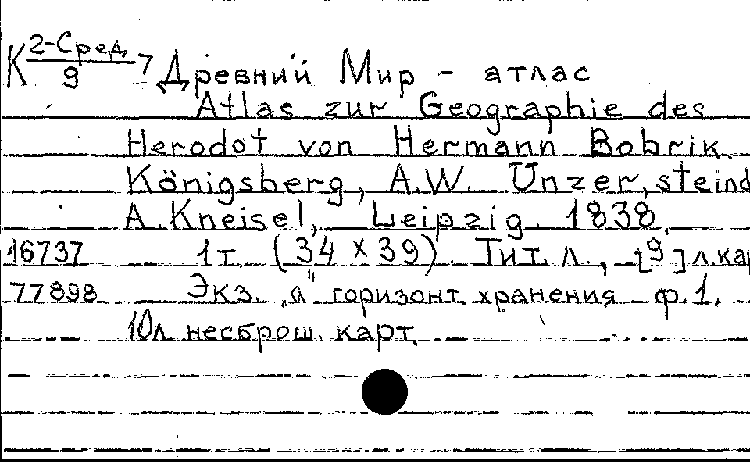 К 2-Сред/9 7 Древний Мир - атлас
Atlas zur Geographie des
Herodot von Hermann Bobrik.
Königsberg, A.W. Unzer, steind
A. Kneisel, Leipzig 1838.
16737 1 т. (34 x 39) Тит. л., [9] л. кар
77898 Экз. „а" горизонт. хранения ф. 1.
10л несброш. карт.